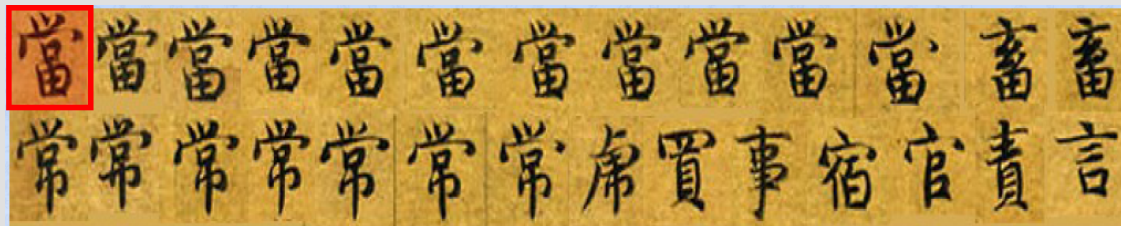 當當當當當當當當當當當畜畜
常常常常常常常虎買事宿官責言